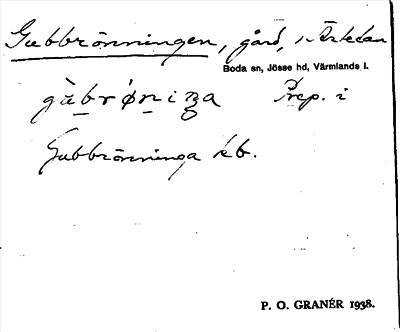 Gubbrönningen, gård, i Årbotan
Boda sn, Jösse hd, Värmlands l.
gùbrǿniŋa Prep. i
Gubbrönninga kb.
P. O. GRANÉR 1938.